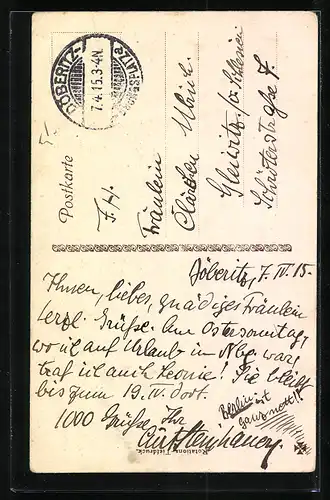 DÖBERITZ-
7.4.15.3-4N
Postkarte
F. H.
Fräulein
Clärchen
Gleiwitz, O/Schlesien
Döberitz, 7. IV. 15.
Ihnen, liebes, gnädiges Fräulein
herzl. Grüße. Am Ostersonntag,
wo ich auf Urlaub in Nbg. war,
traf ich auch Leonie! Sie bleibt
bis zum 19. IV. dort.
Berlin ist
ganz nett!!
1000 Grüße, Ihr
Rotations Tiefdruck